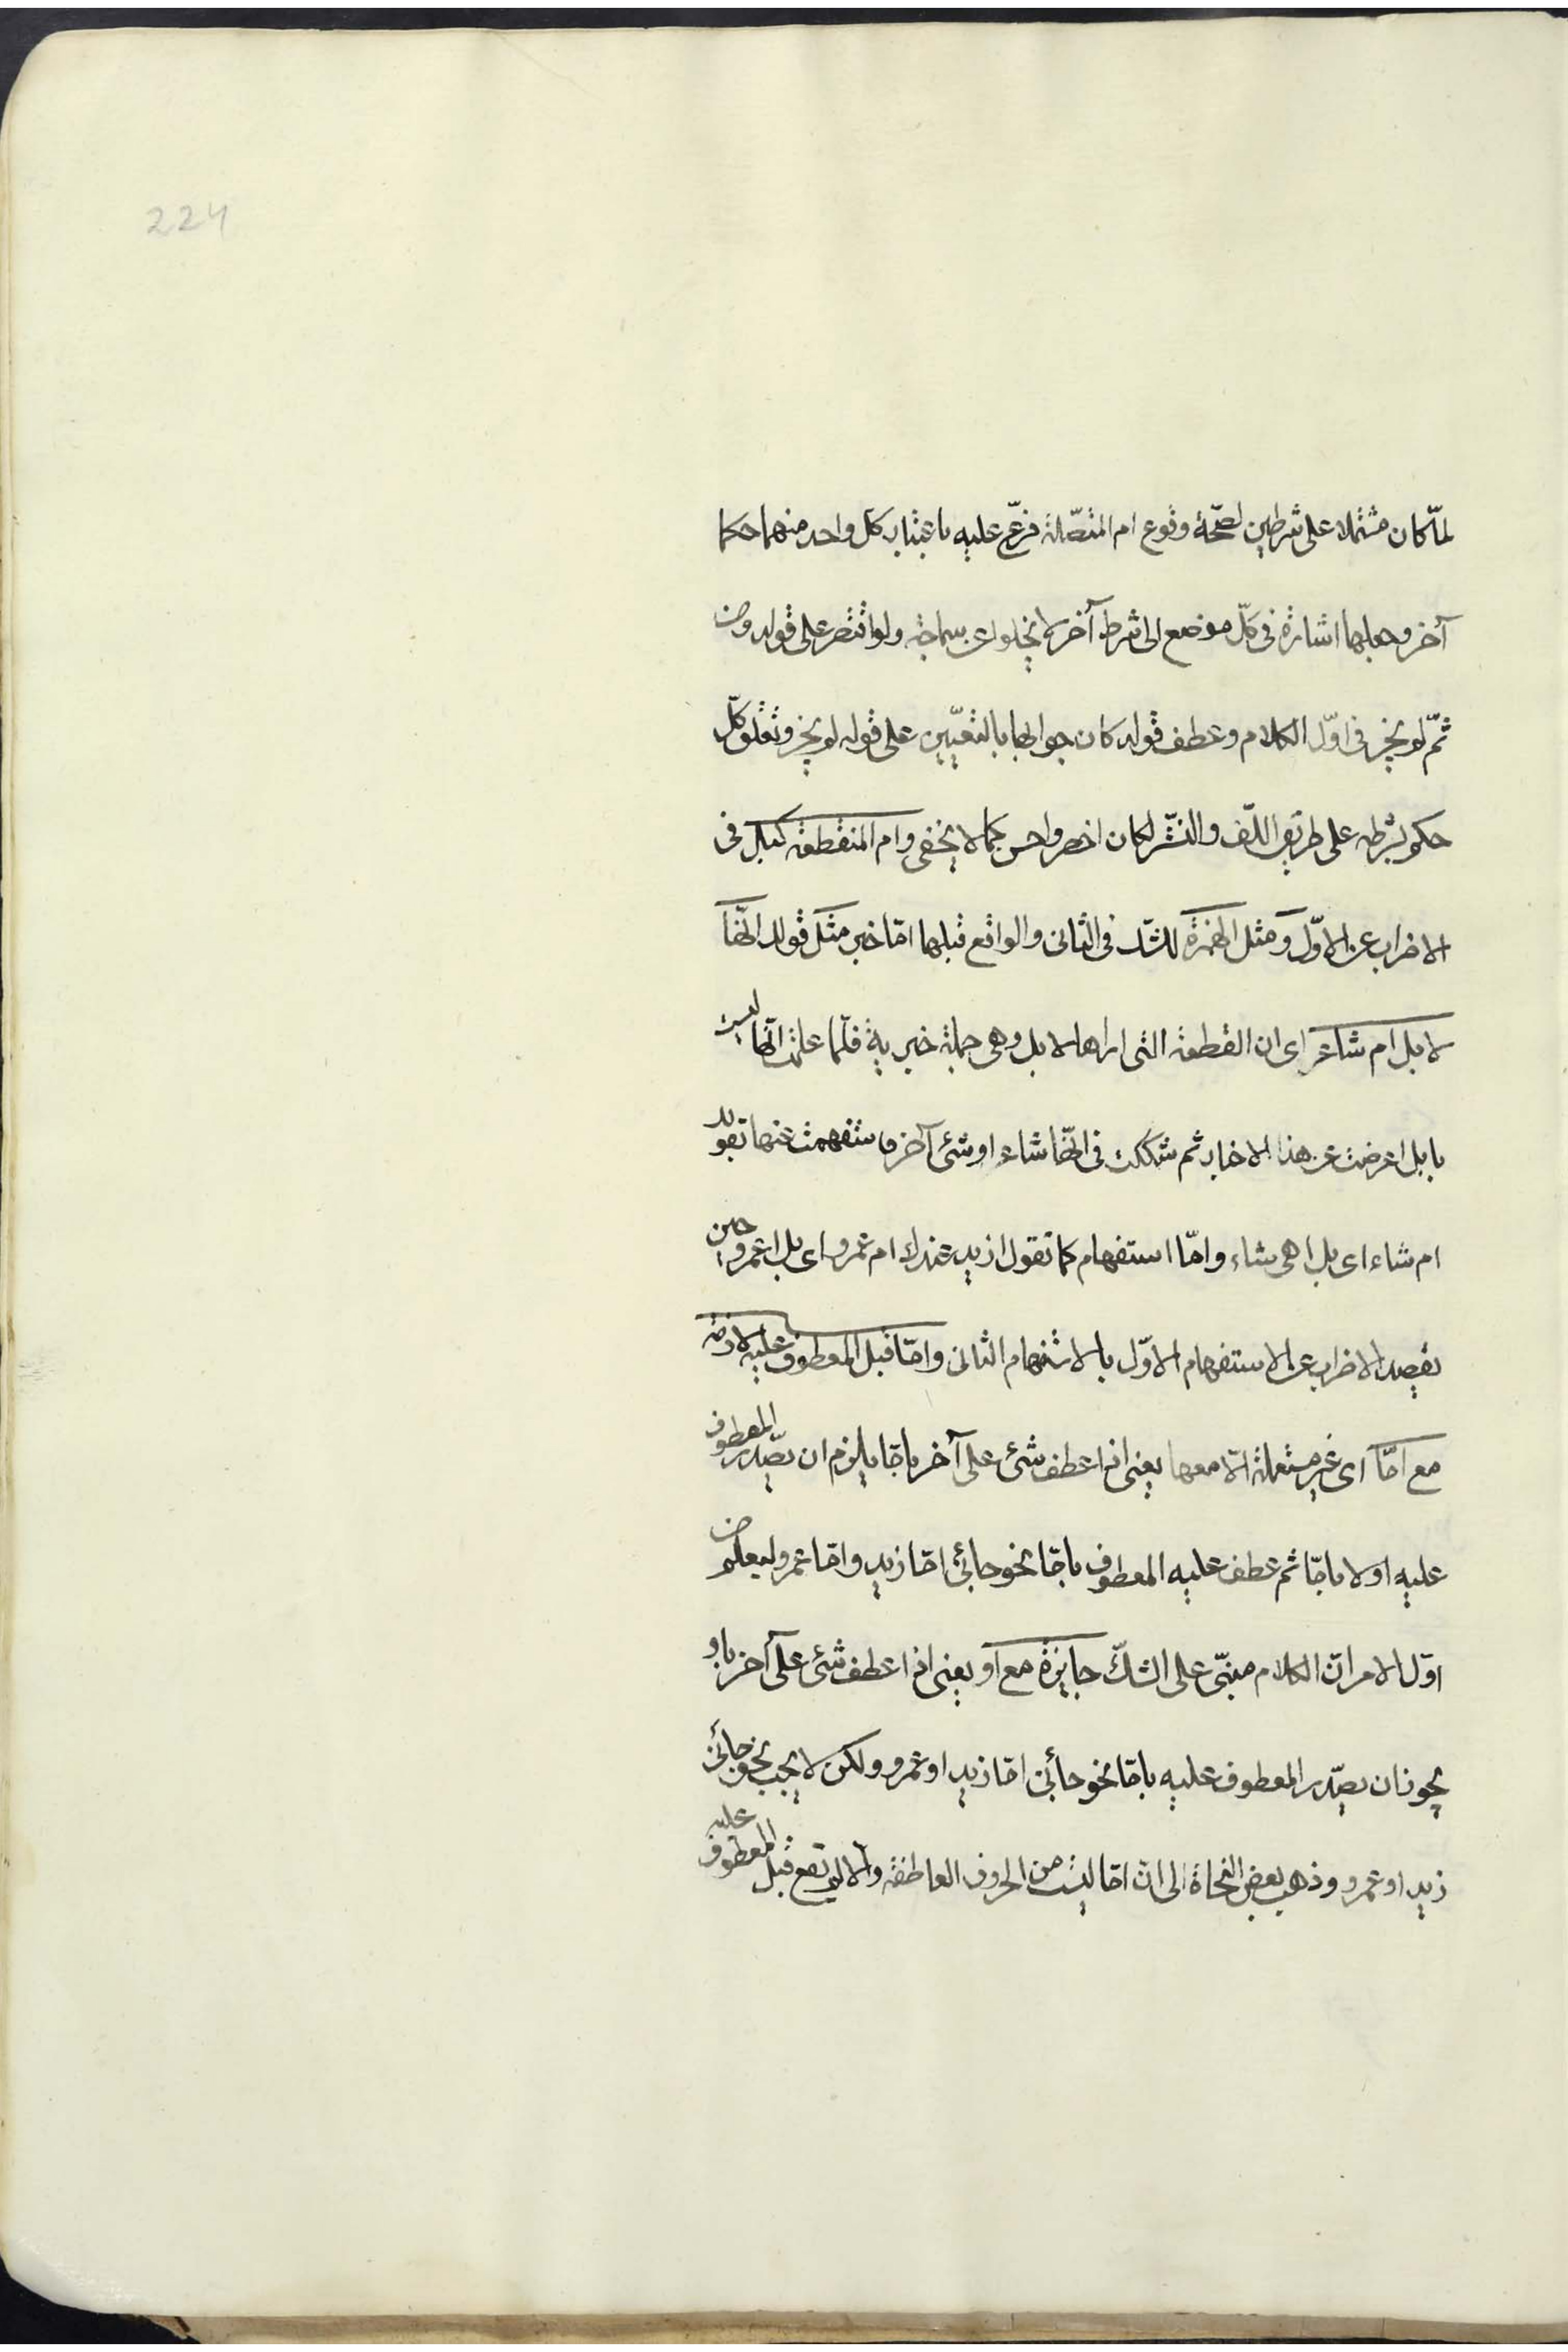 224
لمّا كان مشتملا على شرطين لصحّة وقوع ام المتصّلة فرّع عليه باعتبار كلّ واحد منهما حكما
آخر وجعلها اشارة فى كلّ موضع الى شرط آخر لا يخلو عن سماجة ولو اقتصر على قوله ومن
ثمّ لم يجز فى اوّل الكلام وعطف قوله كان جوابها بالتعيّين على قوله لم يجز وتعلق كلّ
حكم بشرطه على طريق اللّف والنّشر لكان اخصر واحسن كما لا يخفى وام المنقطعة كبل فى
الاضراب عن الاوّل ومثل الهمزة للشّك فى الثانى والواقع قبلها امّا خبر مثل قولك انّها
لابل ام شاء اى ان القطعة التى اراها لابل وهى جملة خبرية فلمّا علمت انّها ليست
بابل اعرضت عن هذا الاخبار ثم شككت فى انّها شاء او شئ آخر فاستفهمت عنها بقولك
ام شاء اى بل اهى شاء وامّا استفهام كما تقول ازيد عندك ام عمرو اى بل اعمرو حين
تقصد الاضراب عن الاستفهام الاوّل بالاستفهام الثانى وامّا قبل المعطوف عليه لازمة
مع امّا اى غير مستعملة الّا معها يعنى اذا عطف شئ على آخر بامّا يلزم ان يصّدر المعطوف
عليه اولا بامّا ثم عطف عليه المعطوف بامّا نحو جائنى امّا زيد وامّا عمرو ليعلم من
اوّل الامر انّ الكلام مبنّى على الشكّ جايزة مع او يعنى اذا عطف شئ على آخر باو
يجوز ان يصّدر المعطوف عليه بامّا نحو جائنى امّا زيد او عمرو ولكن لا يجب نحو جائنى
زيد او عمرو وذهب بعض النحاة الى انّ امّا ليست من الحروف العاطفة والّا لم تقع قبل المعطوف عليه